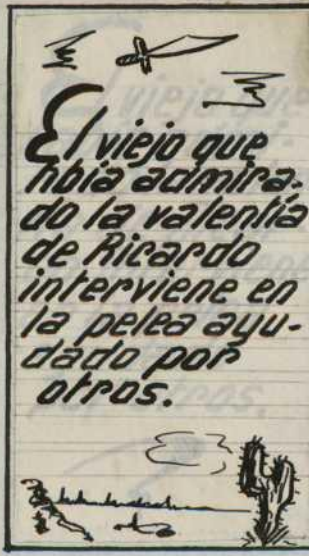 El viejo que
hbia admira-
do la valentía
de Ricardo
interviene en
la pelea ayu-
dado por
otros.